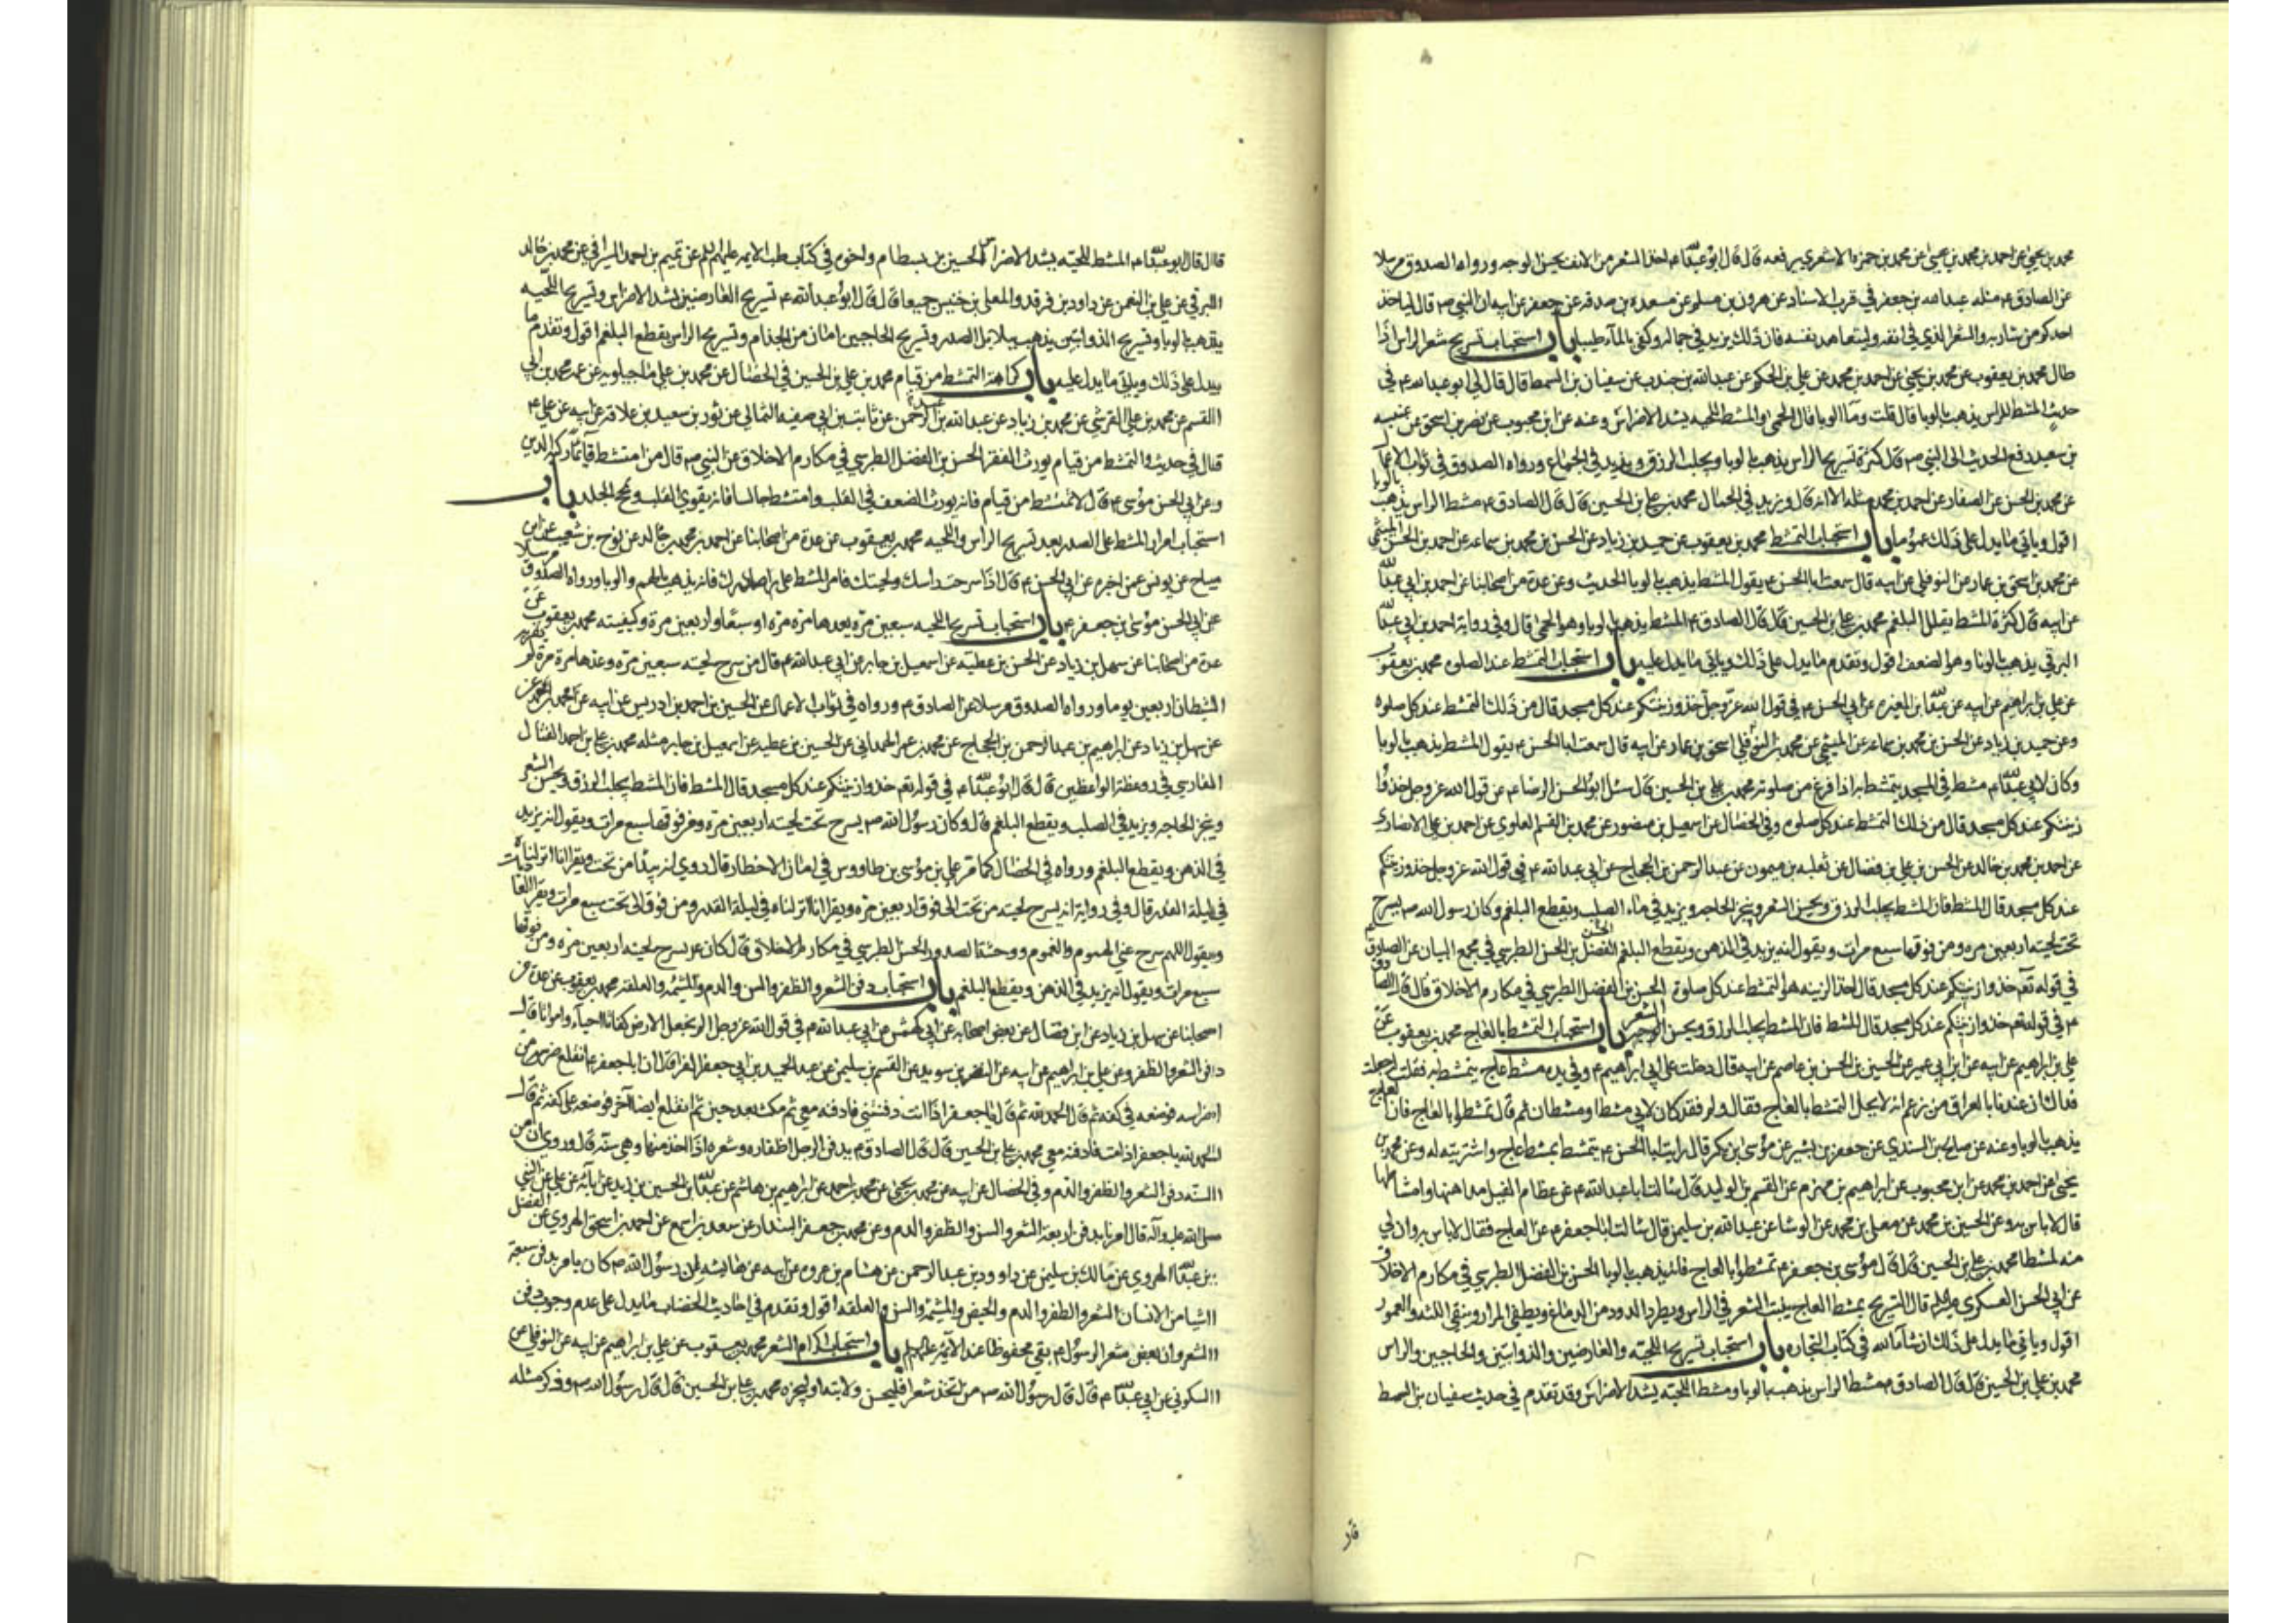 محمد بن يحيى عن احمد بن محمد بن عيسى عن محمد بن حمزه الاشعري يرفعه قال قال ابو عبدالله ع اخذ الشعر من الانف يحسن الوجه ورواه الصدوق مرسلا
عن الصادق ع مثله عبدالله بن جعفر في قرب الاسناد عن هرون بن مسلم عن مسعدة بن صدقه عن جعفر عن ابيه ان النبي ص قال لياخذ
احدكم من شاربه والشعر الذي في انفه وليتعاهد نفسه فان ذلك يزيد في جماله وكفى بالماء طيبا باب استحباب تسريح شعر الراس اذا
طال محمد بن يعقوب عن محمد بن يحيى عن احمد بن محمد عن علي بن الحكم عن عبدالله بن جندب عن سفيان بن السمط قال قال لي ابو عبدالله ع في
حديث المشط للراس يذهب بالوبا قال قلت وما الوبا قال الحمى والمشط للحيه يشد الاضراس وعنه عن ابن محبوب عن نصر بن اسحق عن عنبسه
بن سعيد رفع الحديث الى النبي ص قال كثرة تسريح الراس يذهب بالوبا ويجلب الرزق ويزيد في الجماع ورواه الصدوق في ثواب الاعمال
عن محمد بن الحسن عن الصفار عن احمد بن محمد مثله الا انه قال ويزيد في الجمال محمد بن علي بن الحسين قال قال الصادق ع مشط الراس يذهب بالوبا
اقول وياتي ما يدل على ذلك عموما باب استحباب التمشط محمد بن يعقوب عن حميد بن زياد عن الحسن بن محمد بن سماعه عن احمد بن الحسن الميثمي
عن محمد بن اسحق بن عمار عن النوفلي عن ابيه قال سمعت ابا الحسن ع يقول المشط يذهب بالوبا الحديث وعن عدة من اصحابنا عن احمد بن ابي عبدالله
عن ابيه قال كثرة المشط يقلل البلغم محمد بن علي بن الحسين قال قال الصادق ع المشط يذهب بالوبا وهو الحمى قال وفي رواية احمد بن ابي عبدالله
البرقي يذهب بالونا وهو الضعف اقول وتقدم ما يدل على ذلك وياتي ما يدل عليه باب استحباب التمشط عند الصلوه محمد بن يعقوب
عن علي بن ابراهيم عن ابيه عن عبدالله بن المغيره عن ابي الحسن ع في قول الله عز وجل خذوا زينتكم عند كل مسجد قال من ذلك التمشط عند كل صلوه
وعن حميد بن زياد عن الحسن بن محمد بن سماعه عن الميثمي عن محمد بن اسحق بن عمار عن ابيه قال سمعت ابا الحسن ع يقول المشط يذهب بالوبا
وكان لابي عبدالله ع مشط في المسجد يتمشط به اذا فرغ من صلوته محمد بن علي بن الحسين قال سئل ابو الحسن الرضا ع عن قول الله عز وجل خذوا
زينتكم عند كل مسجد قال من ذلك التمشط عند كل صلوه وفي الخصال عن اسمعيل بن منصور عن محمد بن القسم العلوي عن احمد بن علي الانصاري
عن احمد بن محمد بن خالد عن الحسن بن علي بن فضال عن ثعلبه بن ميمون عن عبد الرحمن بن الحجاج عن ابي عبدالله ع في قول الله عز وجل خذوا زينتكم
عند كل مسجد قال المشط فان المشط يجلب الرزق ويحسن الشعر وينجز الحاجه ويزيد في ماء الصلب ويقطع البلغم وكان رسول الله ص يسرح
تحت لحيته اربعين مره ومن فوقها سبع مرات ويقول انه يزيد في الذهن ويقطع البلغم الفضل بن الحسن الطبرسي في مجمع البيان عن الصادق ع
في قوله تعالى خذوا زينتكم عند كل مسجد قال اخذ الزينه هو التمشط عند كل صلوة الحسن بن الفضل الطبرسي في مكارم الاخلاق قال قال الصادق
ع في قوله تعالى خذوا زينتكم عند كل مسجد قال المشط فان المشط يجلب الرزق ويحسن الشعر باب استحباب التمشط بالعاج محمد بن يعقوب عن
علي بن ابراهيم عن ابيه عن ابن ابي عمير عن الحسين بن الحسن بن عاصم عن ابيه قال دخلت على ابي ابراهيم ع وفي يده مشط عاج يتمشط به فقلت له جعلت
فداك ان عندنا بالعراق من يزعم انه لا يحل التمشط بالعاج فقال ولم فقد كان لابي مشط او مشطان ثم قال تمشطوا بالعاج فان العاج
يذهب بالوبا وعنه عن صالح بن السندي عن جعفر بن بشير عن موسى بن بكر قال رايت ابا الحسن ع يتمشط بمشط عاج واشتريته له وعن محمد بن
يحيى عن احمد بن محمد عن ابن محبوب عن ابراهيم بن مهزم عن القسم بن الوليد قال سالت ابا عبدالله ع عن عظام الفيل مداهنها وامشاطها
قال لا باس به وعن الحسين بن محمد عن معلى بن محمد عن الوشا عن عبدالله بن سليمن قال سالت ابا جعفر ع عن العاج فقال لا باس به وان لي
منه لمشطا محمد بن علي بن الحسين قال قال موسى بن جعفر ع تمشطوا بالعاج فانه يذهب بالوبا الحسن بن الفضل الطبرسي في مكارم الاخلاق
عن ابي الحسن العسكري قال التسريح بمشط العاج ينبت الشعر في الراس ويطرد الدود من الدماغ ويطفي المرار وينقي اللثه والعمور
اقول وياتي ما يدل على ذلك ان شاء الله في كتاب التجاره باب استحباب تسريح اللحيه والعارضين والذوابتين والحاجبين والراس
محمد بن علي بن الحسين قال قال الصادق ع مشط الراس يذهب بالوبا ومشط اللحيه يشد الاضراس وقد تقدم في حديث سفيان بن السمط
قار
قال قال ابو عبدالله ع المشط للحيه يشد الاضراس الحسين بن بسطام واخوه في كتاب طب الايمه عليهم السلم عن تميم بن احمد السيرافي عن محمد بن خالد
البرقي عن علي بن النعمن عن داود بن فرقد والمعلى بن خنيس جميعا قال قال ابو عبدالله ع تسريح العارضين يشد الاضراس وتسريح اللحيه
يذهب بالوبا وتسريح الذوابتين يذهب ببلابل الصدر وتسريح الحاجبين امان من الجذام وتسريح الراس يقطع البلغم اقول وتقدم ما
يدل على ذلك وياتي ما يدل عليه باب كراهة التمشط من قيام محمد بن علي بن الحسين في الخصال عن محمد بن علي ماجيلويه عن عمه محمد بن ابي
القسم عن محمد بن علي القرشي عن محمد بن زياد عن عبدالله بن عبد الرحمن عن ثابت بن ابي صفيه الثمالي عن ثور بن سعيد بن علاقه عن ابيه عن علي ع
قال في حديث والتمشط من قيام يورث الفقر الحسن بن الفضل الطبرسي في مكارم الاخلاق عن النبي ص قال من امتشط قائما ركبه الدين
وعن ابي الحسن موسى ع قال لا تمتشط من قيام فانه يورث الضعف في القلب وامتشط جالسا فانه يقوي القلب ويمخج الجلد باب
استحباب امرار المشط على الصدر بعد تسريح الراس واللحيه محمد بن يعقوب عن عدة من اصحابنا عن احمد بن محمد بن خالد عن نوح بن شعيب عن ابن
مياح عن يونس عمن اخبره عن ابي الحسن ع قال اذا سرحت راسك ولحيتك فامر المشط على صدرك فانه يذهب بالهم والوبا ورواه الصدوق مرسلا
عن ابي الحسن موسى بن جعفر ع باب استحباب تسريح اللحيه سبعين مره يعدها مره مره او سبعا واربعين مرة وكيفيته محمد بن يعقوب عن
عدة من اصحابنا عن سهل بن زياد عن الحسن بن عطيه عن اسمعيل بن جابر عن ابي عبدالله ع قال من سرح لحيته سبعين مره وعدها مرة مرة لم يقربه
الشيطان اربعين يوما ورواه الصدوق مرسلا عن الصادق ع ورواه في ثواب الاعمال عن الحسين بن احمد بن ادريس عن ابيه عن محمد بن احمد عن
سهل بن زياد عن ابراهيم بن عبد الرحمن بن الحجاج عن محمد بن عمر الهمداني عن الحسين بن عطيه عن اسمعيل بن جابر مثله محمد بن علي بن احمد الفتال
الفارسي في روضة الواعظين قال قال ابو عبدالله ع في قوله تعالى خذوا زينتكم عند كل مسجد قال المشط فان المشط يجلب الرزق ويحسن الشعر
وينجز الحاجه ويزيد في الصلب ويقطع البلغم قال وكان رسول الله ص يسرح تحت لحيته اربعين مره ومن فوقها سبع مرات ويقول انه يزيد
في الذهن ويقطع البلغم ورواه في الخصال كما مر علي بن موسى بن طاووس في امان الاخطار قال روي انه يبدا من تحت ويقرا انا انزلناه
في ليلة القدر قال وفي رواية انه يسرح لحيته من تحت الى فوق اربعين مره ويقرا انا انزلناه في ليلة القدر ومن فوق الى تحت سبع مرات ويقرا والعاديات
ويقول اللهم سرح عني الهموم والغموم ووحشة الصدور الحسن الطبرسي في مكارم الاخلاق قال كان ع يسرح لحيته اربعين مره ومن فوقها
سبع مرات ويقول انه يزيد في الذهن ويقطع البلغم باب استحباب دفن الشعر والظفر والسن والدم والمشيمه والعلقه محمد بن يعقوب عن عدة من
اصحابنا عن سهل بن زياد عن ابن فضال عن بعض اصحابه عن ابي كهمس عن ابي عبدالله ع في قول الله عز وجل الم نجعل الارض كفاتا احياء وامواتا قال
دفن الشعر والظفر وعن علي بن ابراهيم عن ابيه عن النضر بن سويد عن القسم بن سليمن عن عبد الحميد بن ابي جعفر الفرا قال ان ابا جعفر ع انقلع ضرس من
اضراسه فوضعه في كفه ثم قال الحمد لله ثم قال يا جعفر اذا انت دفنتني فادفنه معي ثم مكث بعد حين ثم انقلع ايضا آخر فوضعه على كفه ثم قال
الحمد لله يا جعفر اذا مت فادفنه معي محمد بن علي بن الحسين قال قال الصادق ع يدفن الرجل اظفاره وشعره اذا اخذ منها وهي سنة قال وروي ان من
السنه دفن الشعر والظفر والدم وفي الخصال عن ابيه عن محمد بن يحيى عن محمد بن احمد عن ابراهيم بن هاشم عن عبدالله بن الحسين بن زيد عن آبائه عن علي عن النبي
صلى الله عليه وآله قال امرنا بدفن اربعة الشعر والسن والظفر والدم وعن محمد بن جعفر البندار عن سعد بن اسمع عن احمد بن اسحق الهروي عن الفضل
بن عبدالله الهروي عن مالك بن سليمن عن داود بن عبد الرحمن عن هشام بن عروه عن ابيه عن عايشه ان رسول الله ص كان يامر بدفن سبعة
اشيا من الانسان الشعر والظفر والدم والحيض والمشيمه والسن والعلقه اقول وتقدم في احاديث الخضاب ما يدل على عدم وجوب دفن
الشعر وان بعض شعر الرسول ص بقي محفوظا عند الائمه عليهم السلم باب استحباب اكرام الشعر محمد بن يعقوب عن علي بن ابراهيم عن ابيه عن النوفلي عن
السكوني عن ابي عبدالله ع قال قال رسول الله ص من اتخذ شعرا فليحسن ولايته او ليجزه محمد بن علي بن الحسين قال قال رسول الله ص وذكر مثله